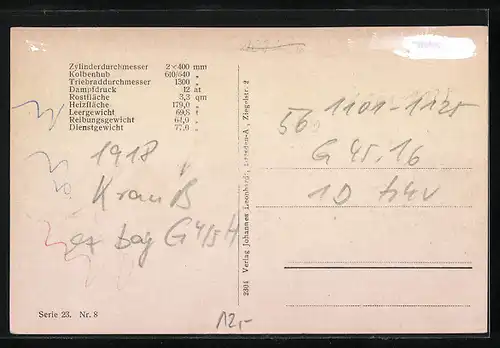 Zylinderdurchmesser 2×400 mm
Kolbenhub 610/640 „
Triebraddurchmesser 1300 „
Dampfdruck 12 at
Rostfläche 3,3 qm
Heizfläche 179,0 „
Leergewicht 69,8 t
Reibungsgewicht „
Dienstgewicht 77,0 „
1918
Krauß
ex bay G 4/5 H
Serie 23. Nr. 8
12,-
2394 Verlag Johannes Leonhardi, Dresden-A., Ziegelstr. 2
56 1101-1125
G 45.16
1D h4v